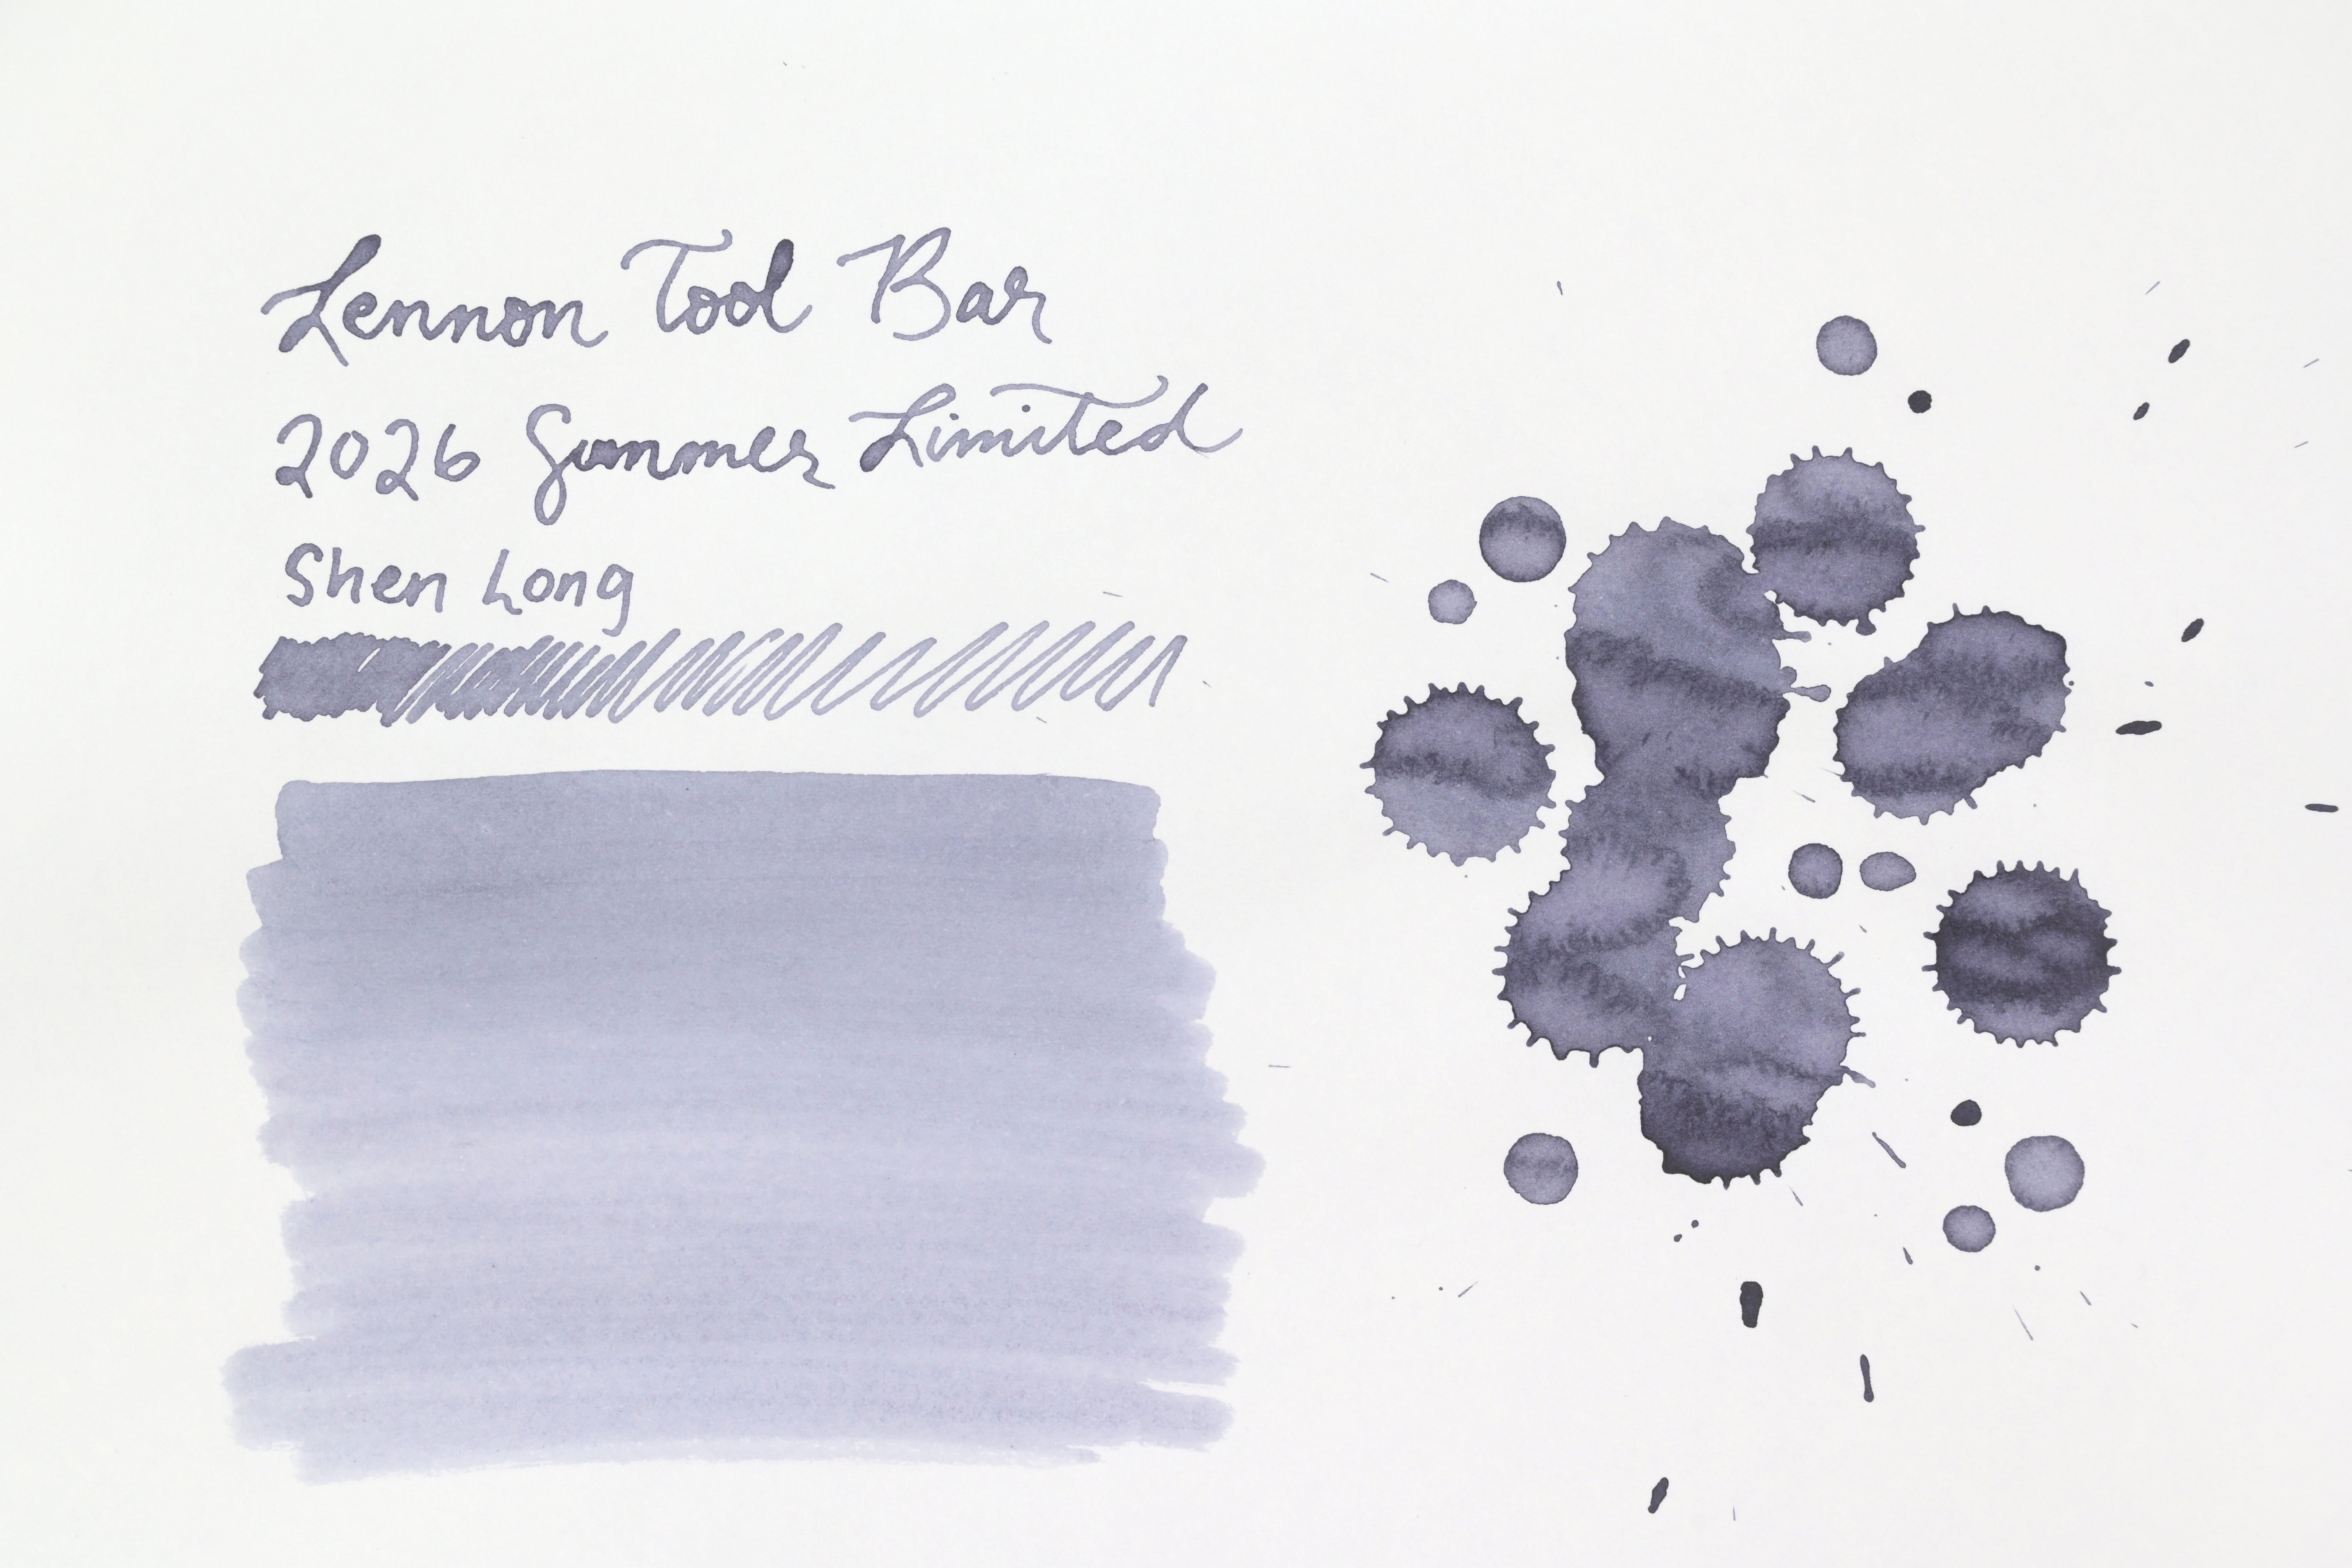 Lennon Tool Bar
2026 Summer Limited
Shen Long